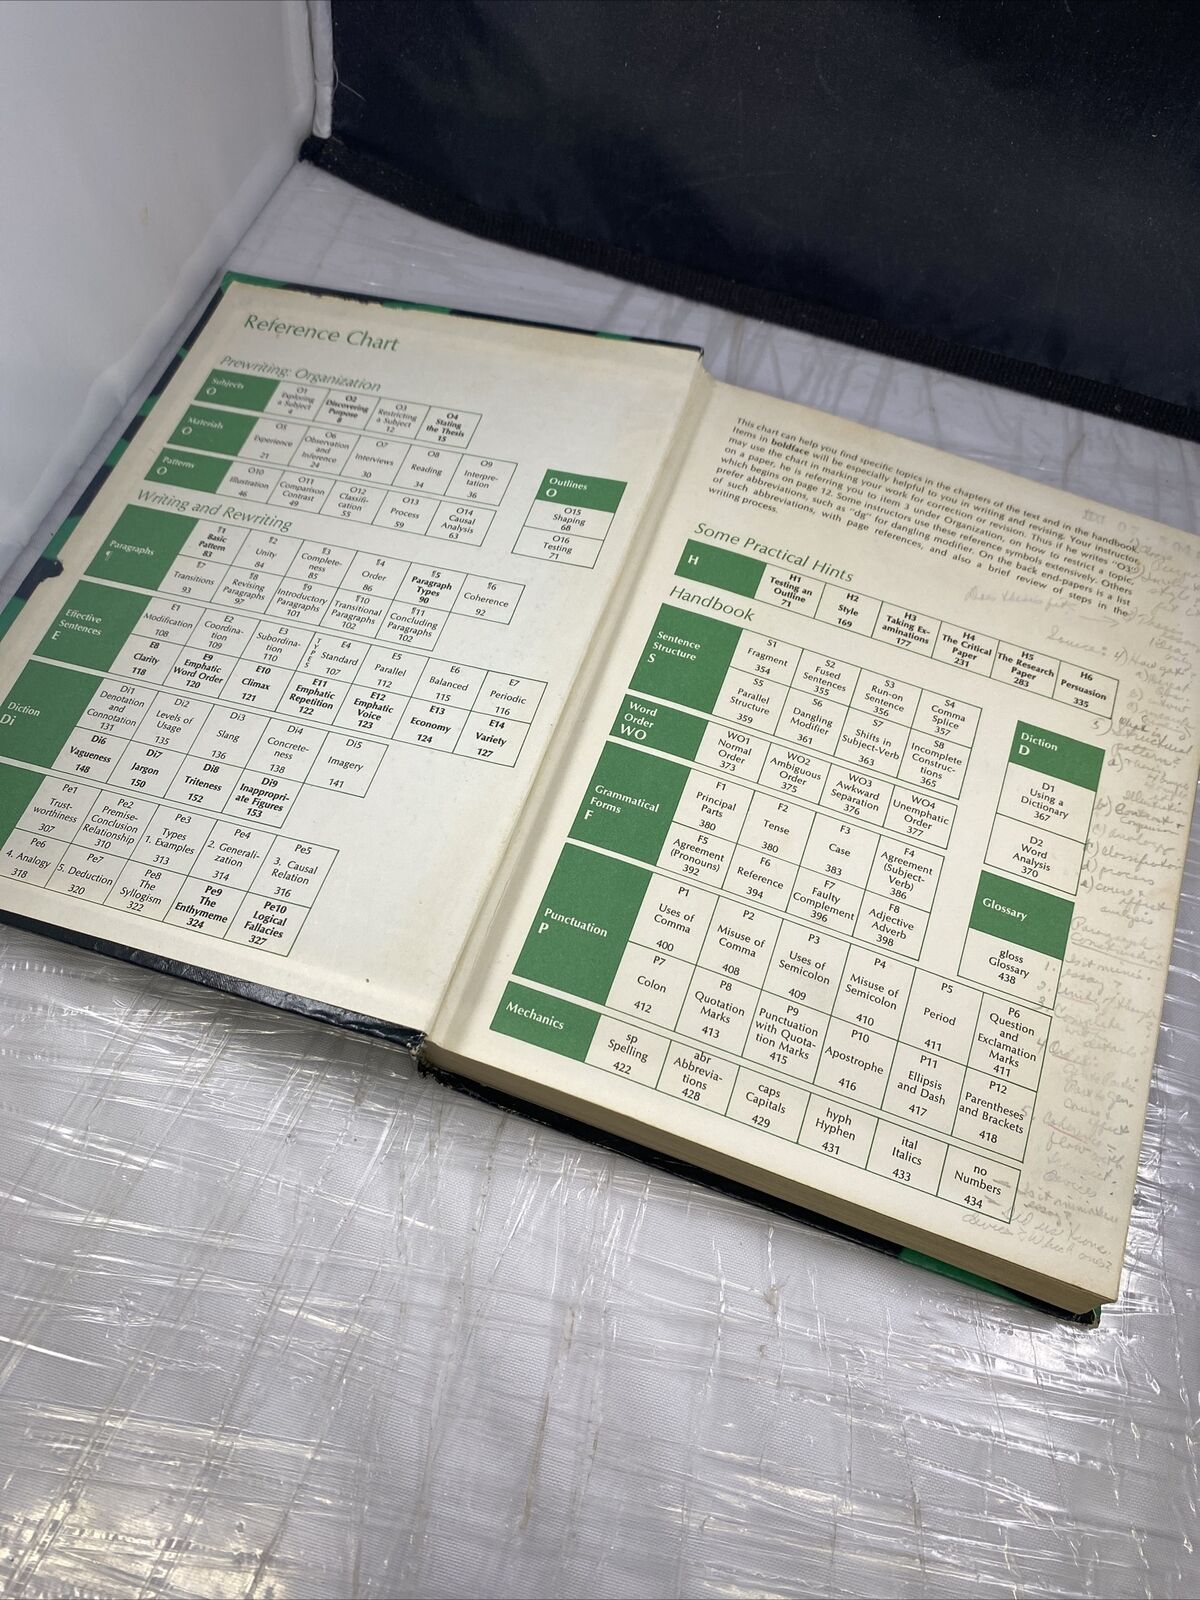 Reference Chart
Prewriting: Organization
Subjects
O
O1
Exploring
a Subject
4
O2
Discovering
Purpose
8
O3
Restricting
a Subject
12
O4
Stating
the Thesis
15
Materials
O
O5
Experience
21
O6
Observation
and
Inference
24
O7
Interviews
30
O8
Reading
34
O9
Interpre-
tation
36
Patterns
O
O10
Illustration
46
O11
Comparison
Contrast
49
O12
Classifi-
cation
55
O13
Process
59
O14
Causal
Analysis
63
Outlines
O
O15
Shaping
68
O16
Testing
71
Writing and Rewriting
Paragraphs
¶
¶1
Basic
Pattern
83
¶2
Unity
84
¶3
Complete-
ness
85
¶4
Order
86
¶5
Paragraph
Types
90
¶6
Coherence
92
¶7
Transitions
93
¶8
Revising
Paragraphs
97
¶9
Introductory
Paragraphs
101
¶10
Transitional
Paragraphs
102
¶11
Concluding
Paragraphs
102
Effective
Sentences
E
E1
Modification
108
E2
Coordina-
tion
109
E3
Subordina-
tion
110
TYPES
E4
Standard
107
E5
Parallel
112
E6
Balanced
115
E7
Periodic
116
E8
Clarity
118
E9
Emphatic
Word Order
120
E10
Climax
121
E11
Emphatic
Repetition
122
E12
Emphatic
Voice
123
E13
Economy
124
E14
Variety
127
Diction
Di
Di1
Denotation
and
Connotation
131
Di2
Levels of
Usage
135
Di3
Slang
136
Di4
Concrete-
ness
138
Di5
Imagery
141
Di6
Vagueness
148
Di7
Jargon
150
Di8
Triteness
152
Di9
Inappropri-
ate Figures
153
Pe1
Trust-
worthiness
307
Pe2
Premise-
Conclusion
Relationship
310
Pe3
Types
1. Examples
313
Pe4
2. Generali-
zation
314
Pe5
3. Causal
Relation
316
Pe6
4. Analogy
318
Pe7
5. Deduction
320
Pe8
The
Syllogism
322
Pe9
The
Enthymeme
324
Pe10
Logical
Fallacies
327
This chart can help you find specific topics in the chapters of the text and in the handbook.
Items in boldface will be especially helpful to you in writing and revising. Your instructor
may use the chart in making your work for correction or revision. Thus if he writes "O3"
on a paper, he is referring you to item 3 under Organization, on how to restrict a topic,
which begins on page 12. Some instructors use these reference symbols extensively. Others
prefer abbreviations, such as "dg" for dangling modifier. On the back end-papers is a list
of such abbreviations, with page references, and also a brief review of steps in the
writing process.
Some Practical Hints
H
H1
Testing an
Outline
71
H2
Style
169
H3
Taking Ex-
aminations
177
H4
The Critical
Paper
231
H5
The Research
Paper
283
H6
Persuasion
335
Handbook
Sentence
Structure
S
S1
Fragment
354
S2
Fused
Sentences
355
S3
Run-on
Sentence
356
S4
Comma
Splice
357
S5
Parallel
Structure
359
S6
Dangling
Modifier
361
S7
Shifts in
Subject-Verb
363
S8
Incomplete
Construc-
tions
365
Word
Order
WO
WO1
Normal
Order
373
WO2
Ambiguous
Order
375
WO3
Awkward
Separation
376
WO4
Unemphatic
Order
377
Diction
D
D1
Using a
Dictionary
367
D2
Word
Analysis
370
Grammatical
Forms
F
F1
Principal
Parts
380
F2
Tense
380
F3
Case
383
F4
Agreement
(Subject-
Verb)
386
F5
Agreement
(Pronouns)
392
F6
Reference
394
F7
Faulty
Complement
396
F8
Adjective
Adverb
398
Glossary
gloss
Glossary
438
Punctuation
P
P1
Uses of
Comma
400
P2
Misuse of
Comma
408
P3
Uses of
Semicolon
409
P4
Misuse of
Semicolon
410
P5
Period
411
P6
Question
and
Exclamation
Marks
411
P7
Colon
412
P8
Quotation
Marks
413
P9
Punctuation
with Quota-
tion Marks
415
P10
Apostrophe
416
P11
Ellipsis
and Dash
417
P12
Parentheses
and Brackets
418
Mechanics
sp
Spelling
422
abr
Abbrevia-
tions
428
caps
Capitals
429
hyph
Hyphen
431
ital
Italics
433
no
Numbers
434